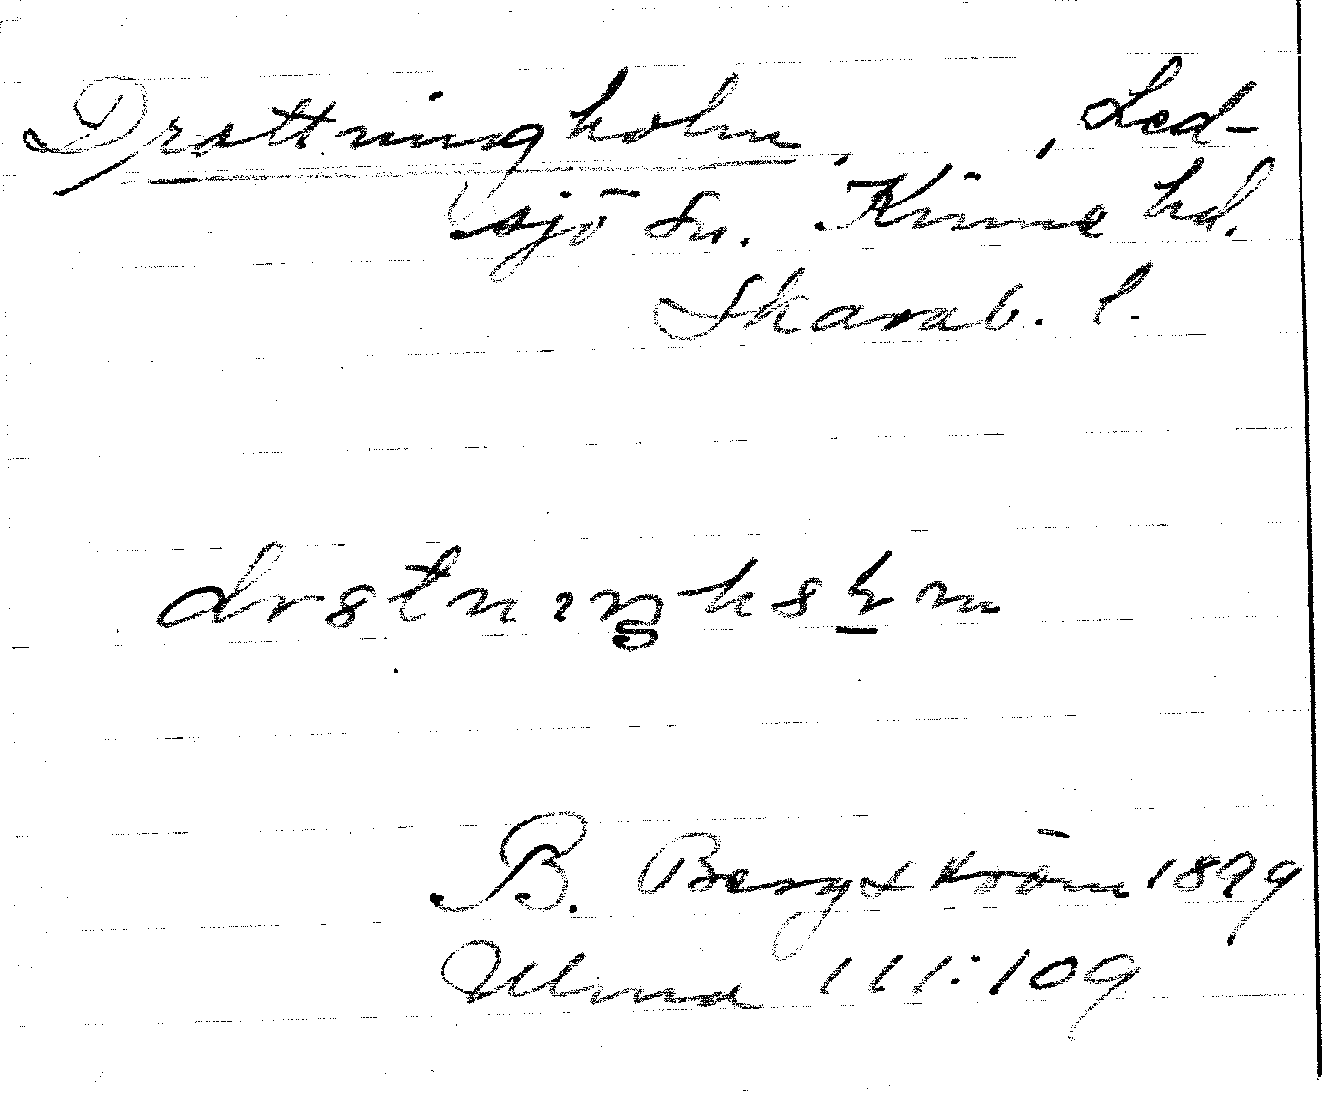 Drottningholm, , Led-
sjö sn. Kinne hd.
Skarab. l.
B. Bergström 1899
Ulma 111:109